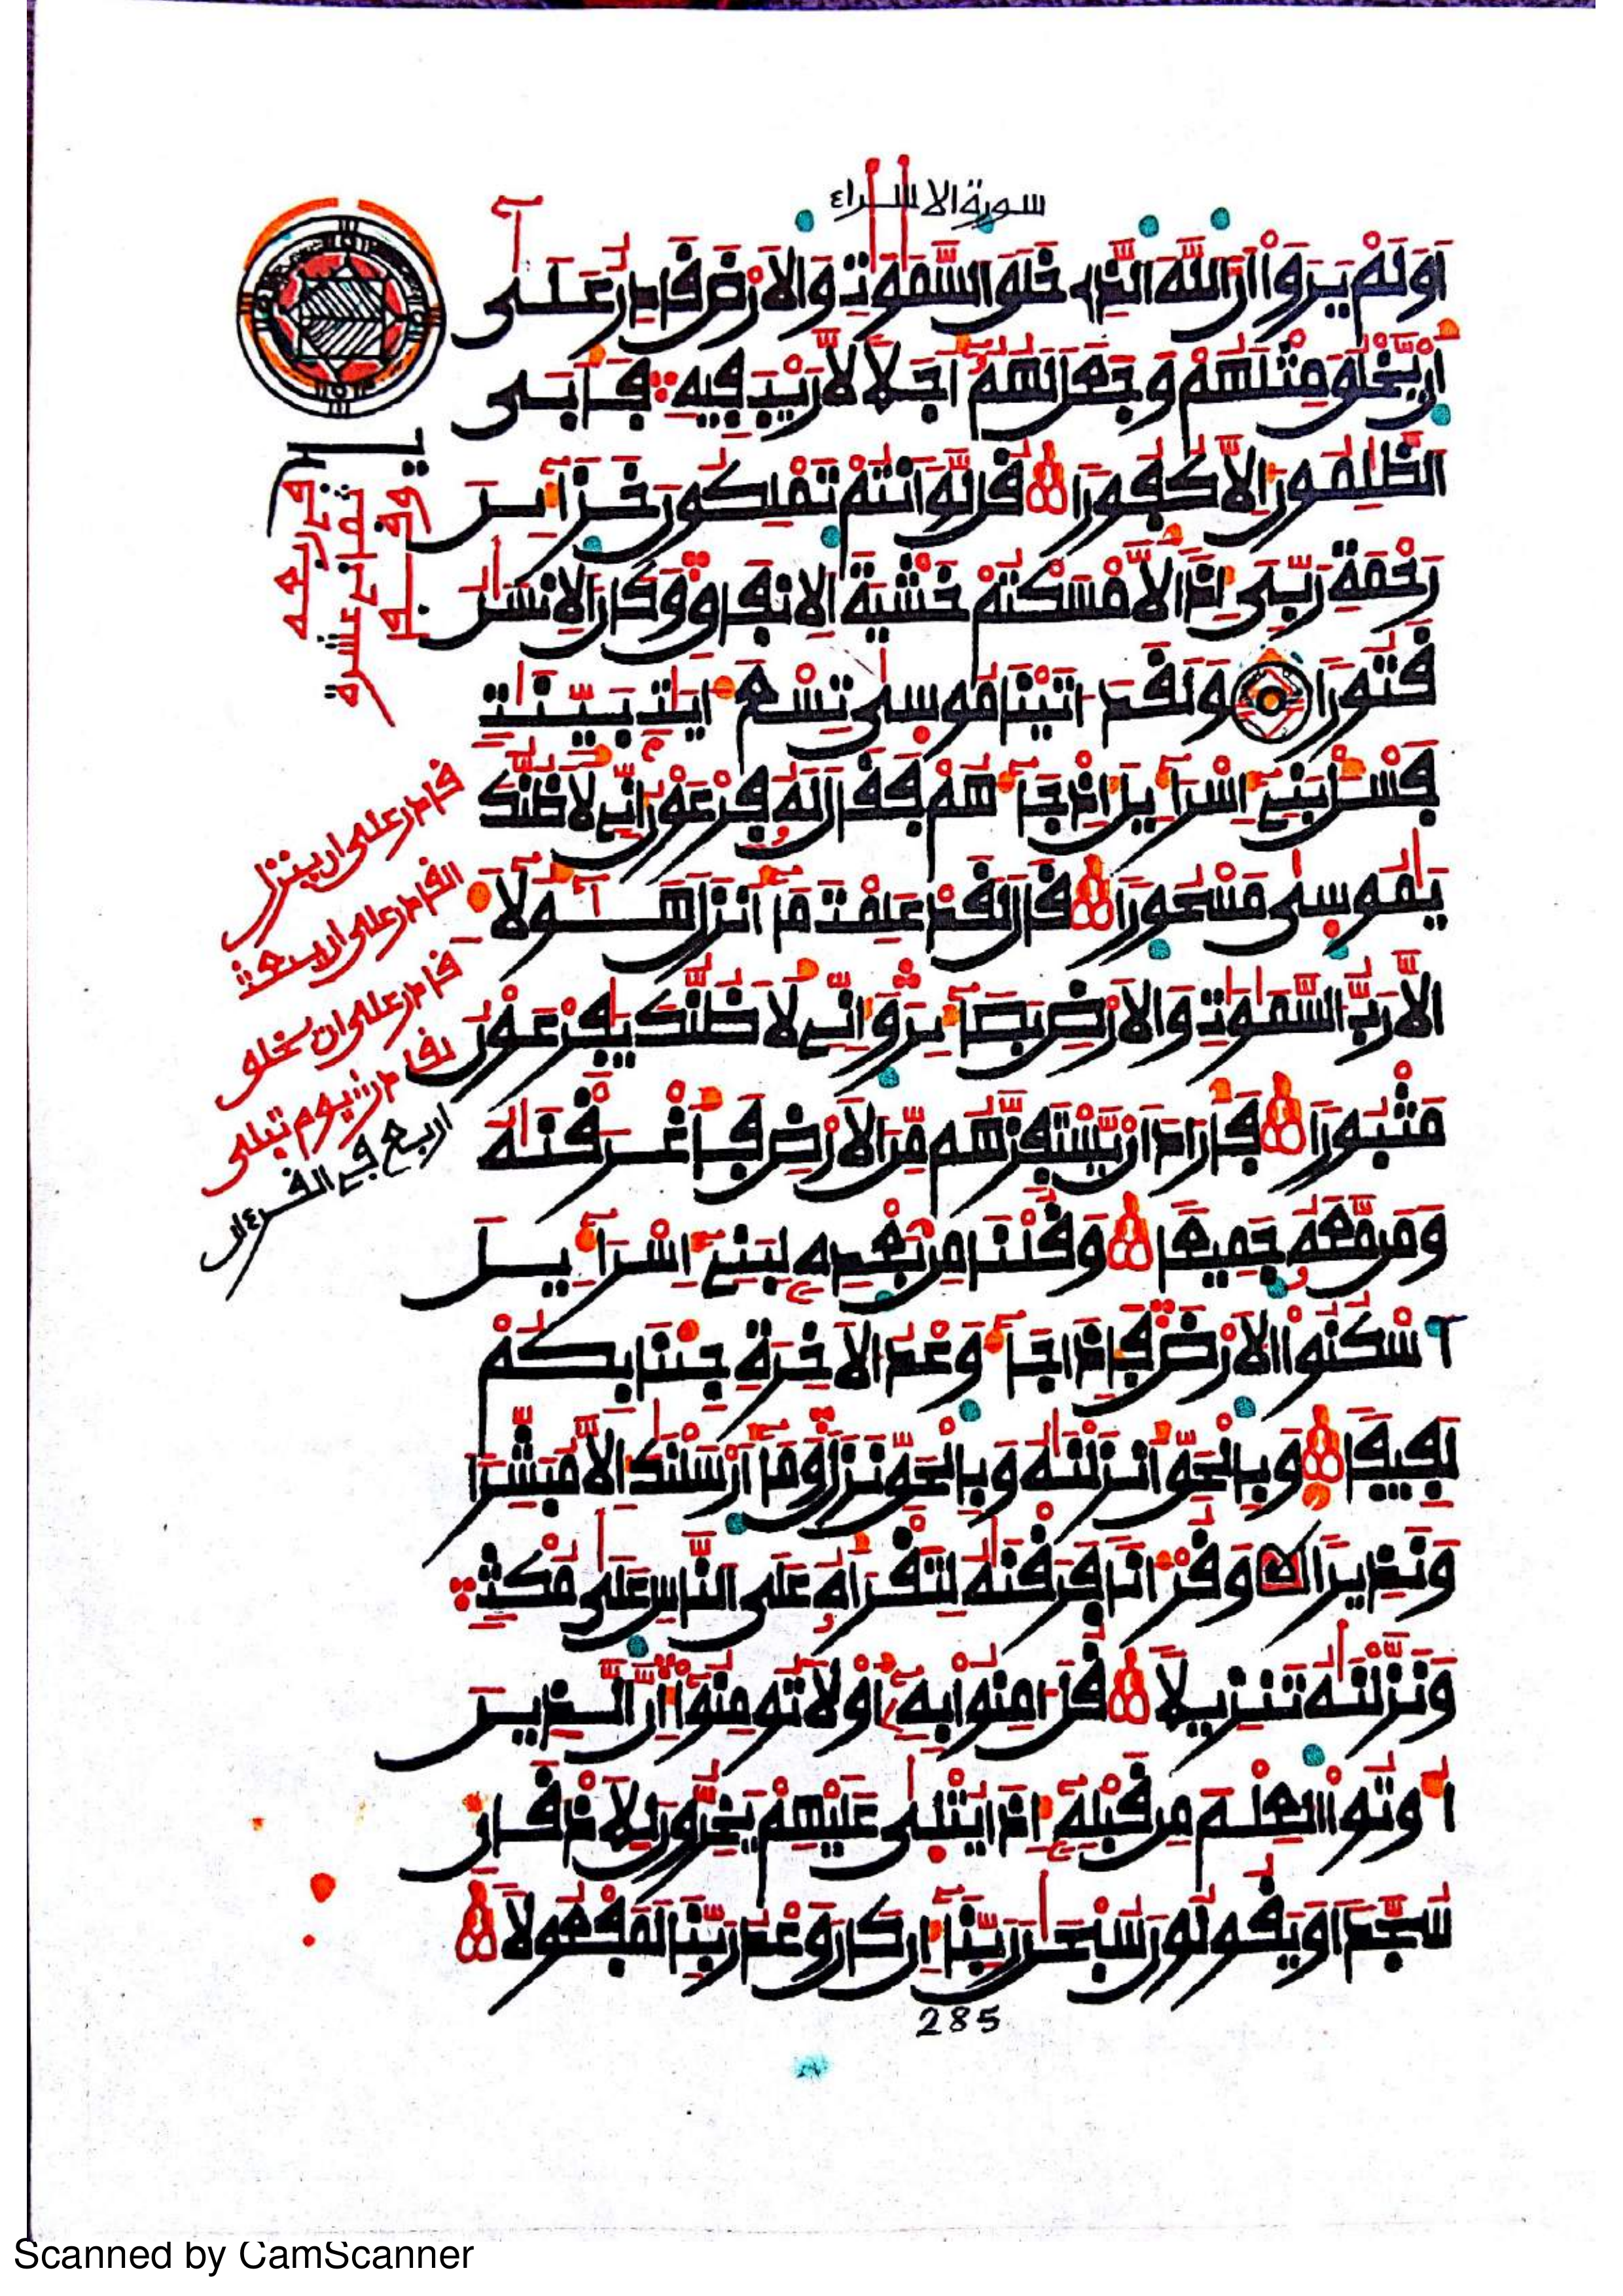 سورة الاسراء
اَوَلَمْ يَرَوْا اَنَّ اللَّهَ الَّذِى خَلَقَ السَّمَٰوَٰتِ وَالَارْضَ قَادِرٌ عَلَىٰٓ
أَنْ يَّخْلُقَ مِثْلَهُمْ وَجَعَلَ لَهُمُۥٓ أَجَلًا لَّا رَيْبَ فِيهِ فَأَبَى
الظَّٰلِمُونَ إِلَّا كُفُورًا قُل لَّوَ اَنتُمْ تَمْلِكُونَ خَزَآئِنَ
رَحْمَةِ رَبِّىَ إِذًا لَّأَمْسَكْتُمْ خَشْيَةَ الِانفَاقِ وَكَانَ الِانسَٰنُ
قَتُورًا وَلَقَدَ اتَيْنَا مُوسَىٰ تِسْعَ ءَايَٰتٍ بَيِّنَٰتٍ
فَسْـَٔلْ بَنِىٓ إِسْرَآءِيلَ إِذْ جَآءَهُمْ فَقَالَ لَهُۥ فِرْعَوْنُ إِنِّى لَأَظُنُّكَ
يَٰمُوسَىٰ مَسْحُورًا قَالَ لَقَدْ عَلِمْتَ مَآ أَنزَلَ هَٰٓؤُلَآءِ
الَّا رَبُّ السَّمَٰوَٰتِ وَالَارْضِ بَصَآئِرَ وَإِنِّى لَأَظُنُّكَ يَٰفِرْعَوْنُ
مَثْبُورًا فَأَرَادَ أَنْ يَّسْتَفِزَّهُم مِّنَ الَارْضِ فَأَغْرَقْنَٰهُ
وَمَن مَّعَهُۥ جَمِيعًا وَقُلْنَا مِنۢ بَعْدِهِۦ لِبَنِىٓ إِسْرَآءِيلَ
اَسْكُنُوا الَارْضَ فَإِذَا جَآءَ وَعْدُ الَاخِرَةِ جِئْنَا بِكُمْ
لَفِيفًا وَبِالْحَقِّ أَنزَلْنَٰهُ وَبِالْحَقِّ نَزَلَ وَمَآ أَرْسَلْنَٰكَ إِلَّا مُبَشِّرًا
وَنَذِيرًا وَقُرْءَانًا فَرَقْنَٰهُ لِتَقْرَأَهُۥ عَلَى النَّاسِ عَلَىٰ مُكْثٍ
وَنَزَّلْنَٰهُ تَنزِيلًا قُلَ امِنُوا بِهِۦٓ أَوْ لَا تُومِنُوٓا إِنَّ الَّذِينَ
أُوتُوا الْعِلْمَ مِن قَبْلِهِۦٓ إِذَا يُتْلَىٰ عَلَيْهِمْ يَخِرُّونَ لِلَاذْقَانِ
سُجَّدًا وَيَقُولُونَ سُبْحَٰنَ رَبِّنَآ إِن كَانَ وَعْدُ رَبِّنَا لَمَفْعُولًا
قادر على ان ينزل
قادر على ان يبعث
قادر على ان يخلق
لقادر يوم تبلى
اربع فى القرءان
285
Scanned by CamScanner